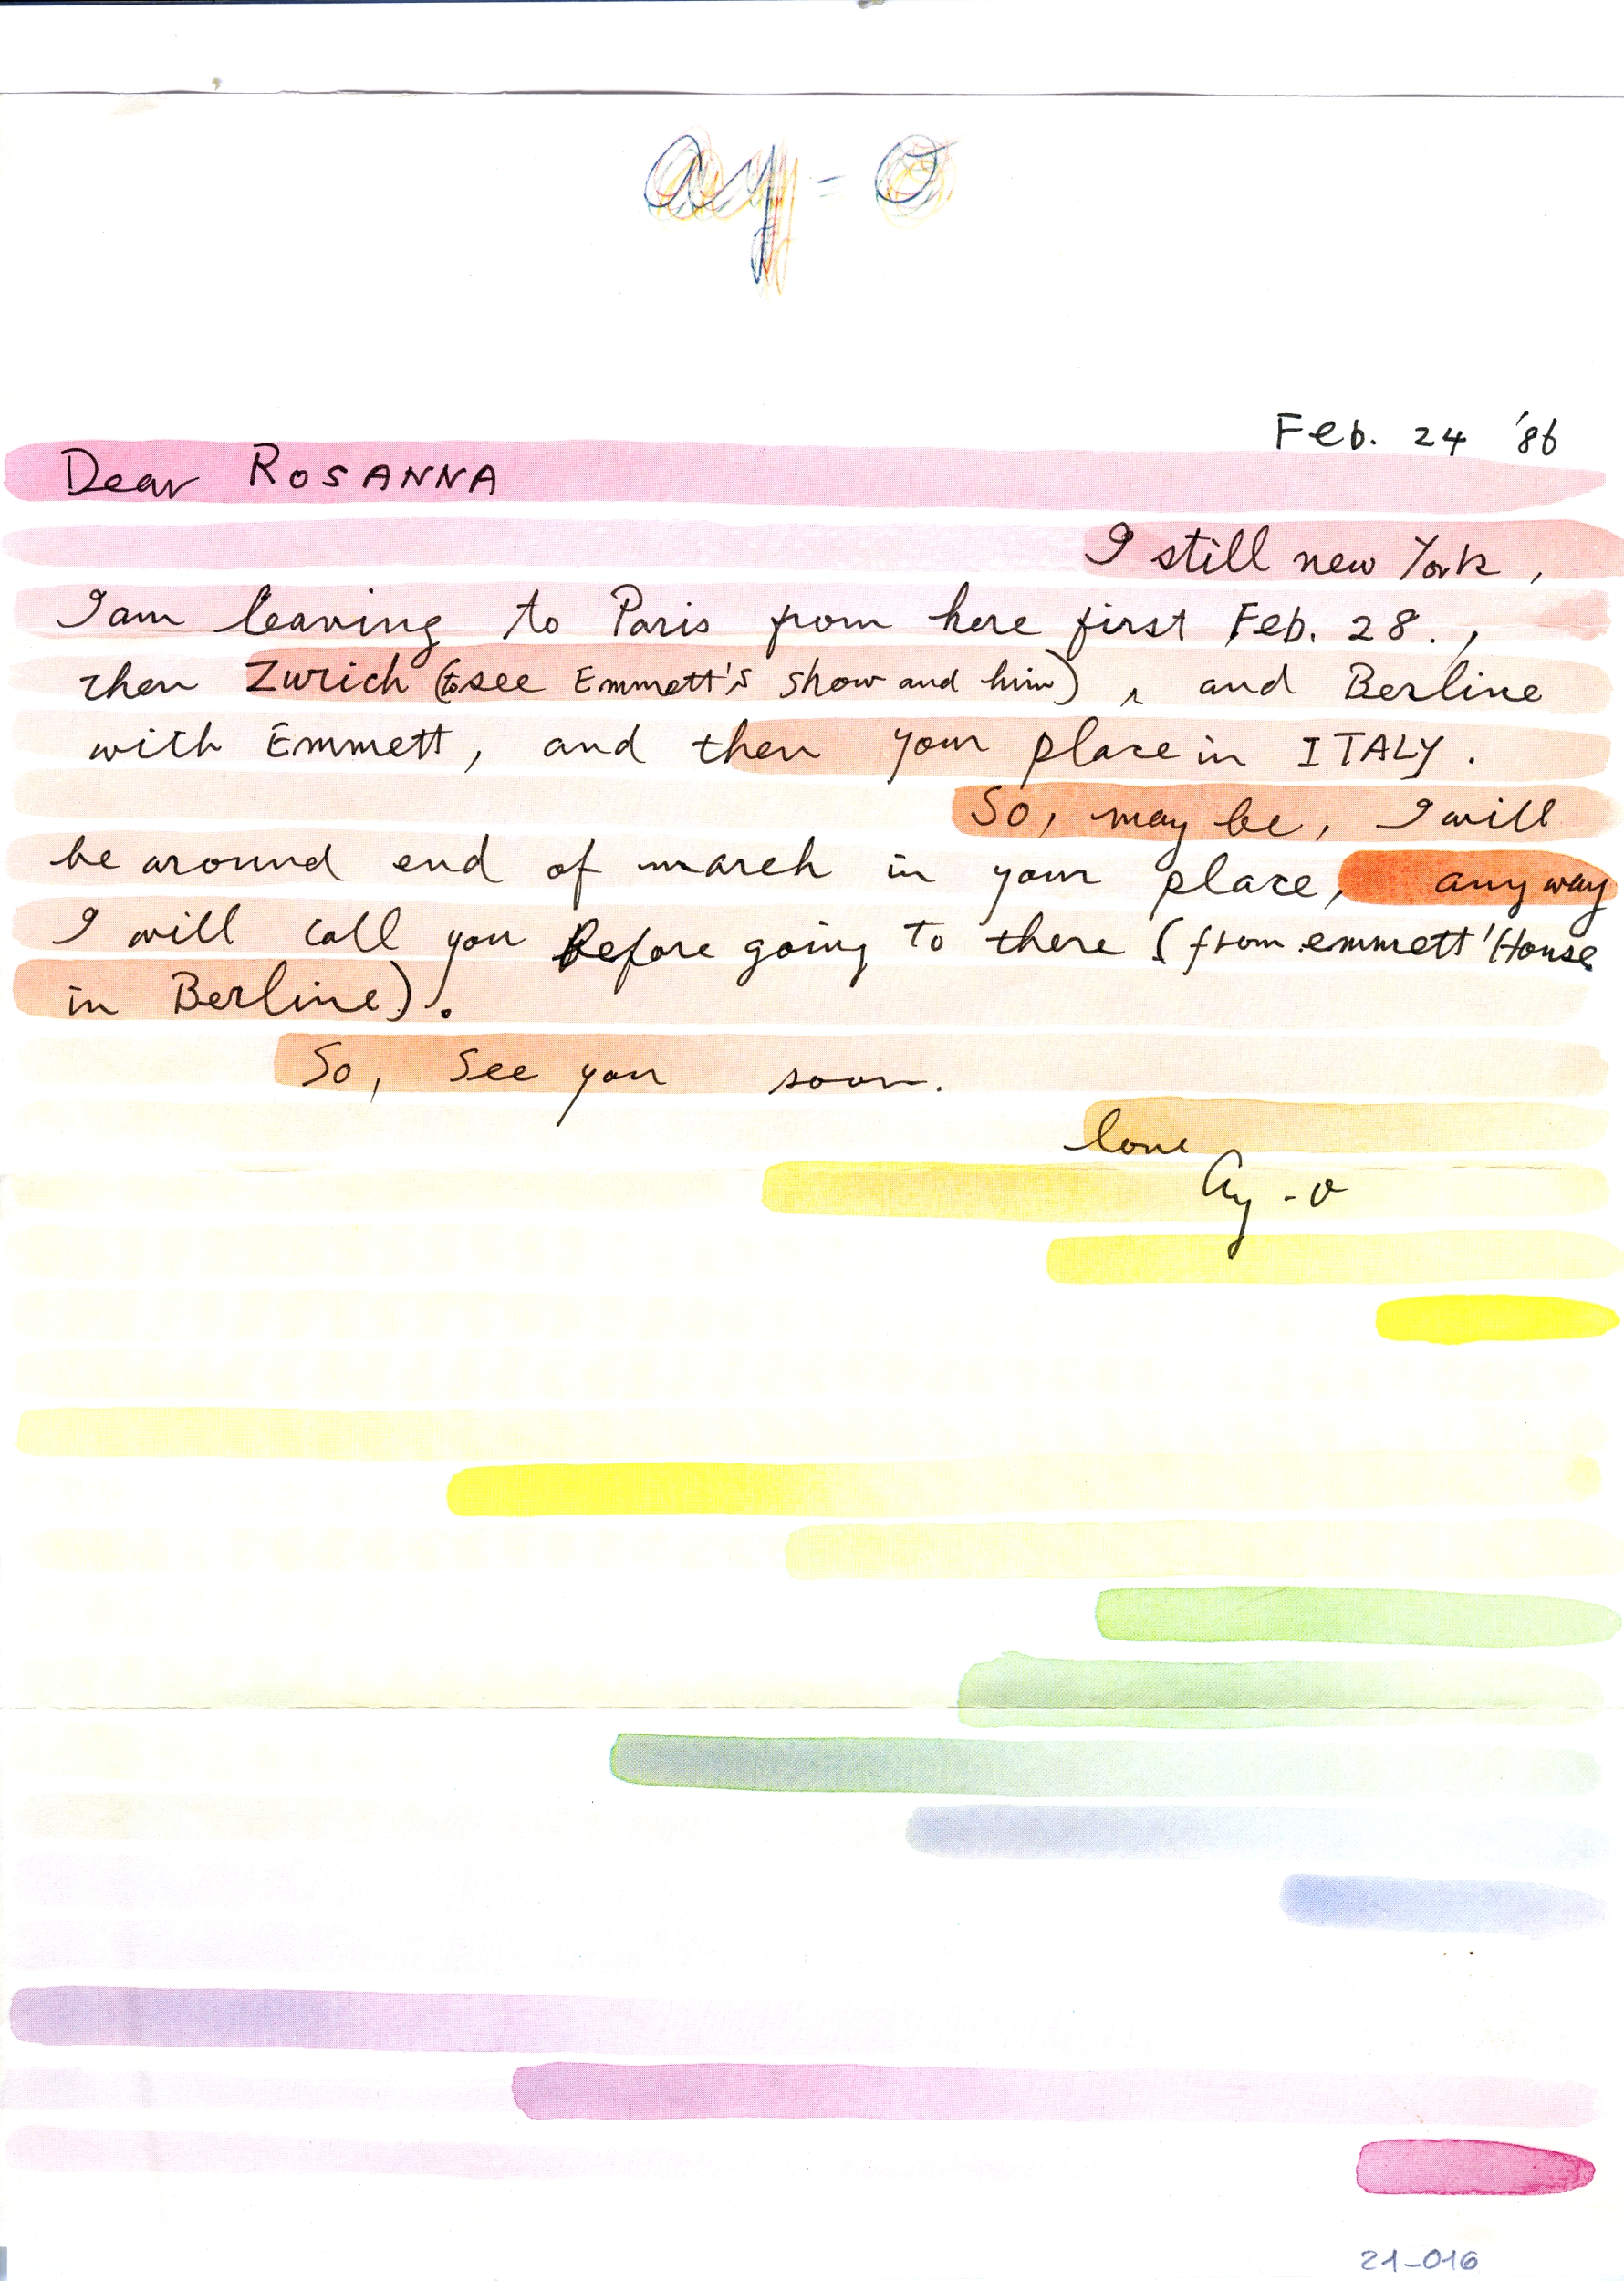 ay-o
Feb. 24 '86
Dear ROSANNA
I still new York,
I am leaving to Paris from here first Feb. 28.,
then Zurich (to see Emmett's show and him), and Berline
with Emmett, and then your place in ITALY.
So, may be, I will
be around end of march in your place, any way
I will call you Before going to there (from emmett' House
in Berline).
So, See you soon.
love
Ay-o
21-016